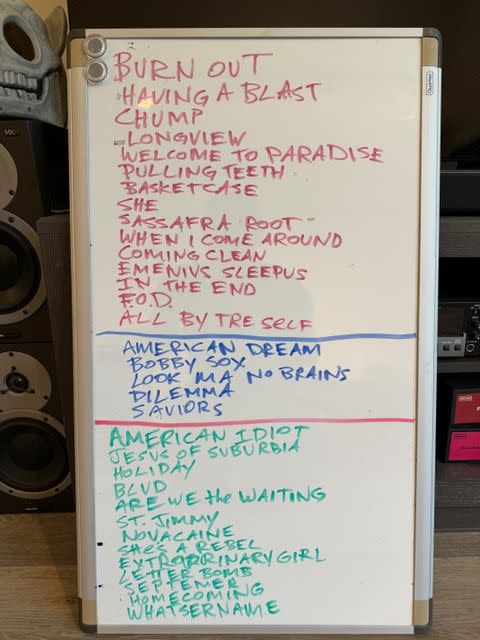 BURN OUT
HAVING A BLAST
CHUMP
LONGVIEW
WELCOME TO PARADISE
PULLING TEETH
BASKETCASE
SHE
SASSAFRA ROOT
WHEN I COME AROUND
COMING CLEAN
EMENIUS SLEEPUS
IN THE END
F.O.D.
ALL BY TRE SELF
AMERICAN DREAM
BOBBY SOX
LOOK MA NO BRAINS
DILEMMA
SAVIORS
AMERICAN IDIOT
JESUS OF SUBURBIA
HOLIDAY
BLVD
ARE WE the WAITING
ST. JIMMY
NOVACAINE
SHE'S A REBEL
EXTRORRINARY GIRL
LETTER BOMB
SEPTEMER
HOMECOMING
WHATSERNAME